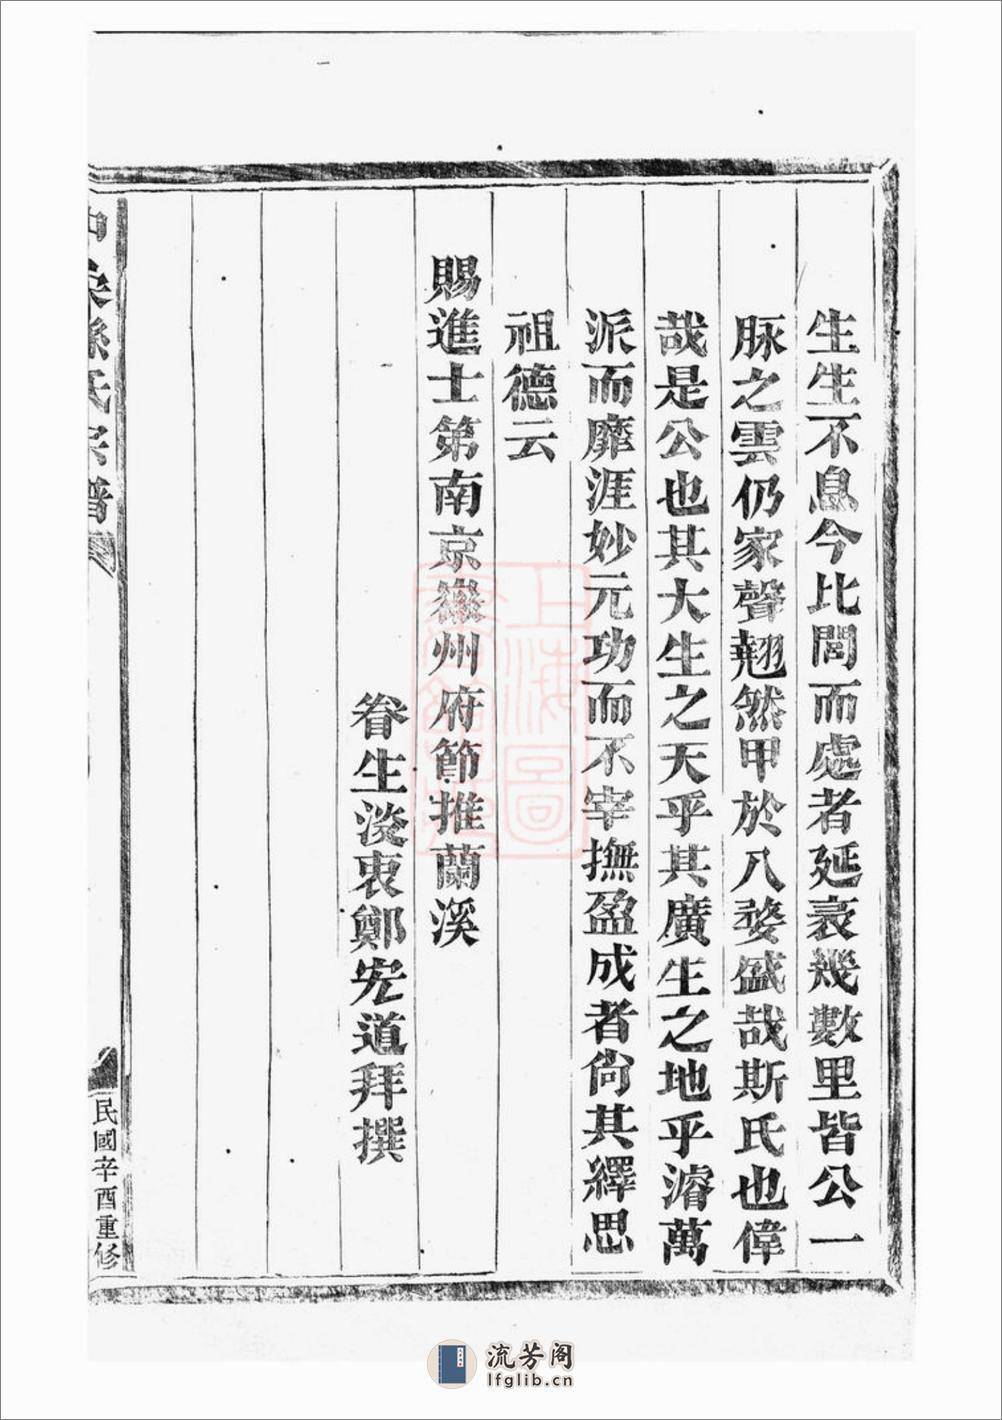 生生不息今比閭而處者延袤幾數里皆公一
脉之雲仍家聲翹然甲於八婺盛哉斯氏也偉
哉是公也其大生之天乎其廣生之地乎濬萬
派而靡涯妙元功而不宰撫盈成者尙其繹思
祖德云
賜進士第南京徽州府節推蘭溪
眷生淡衷鄭宪道拜撰
氏宗譜
民國辛酉重修
上海圖
流芳阁
lfglib.cn